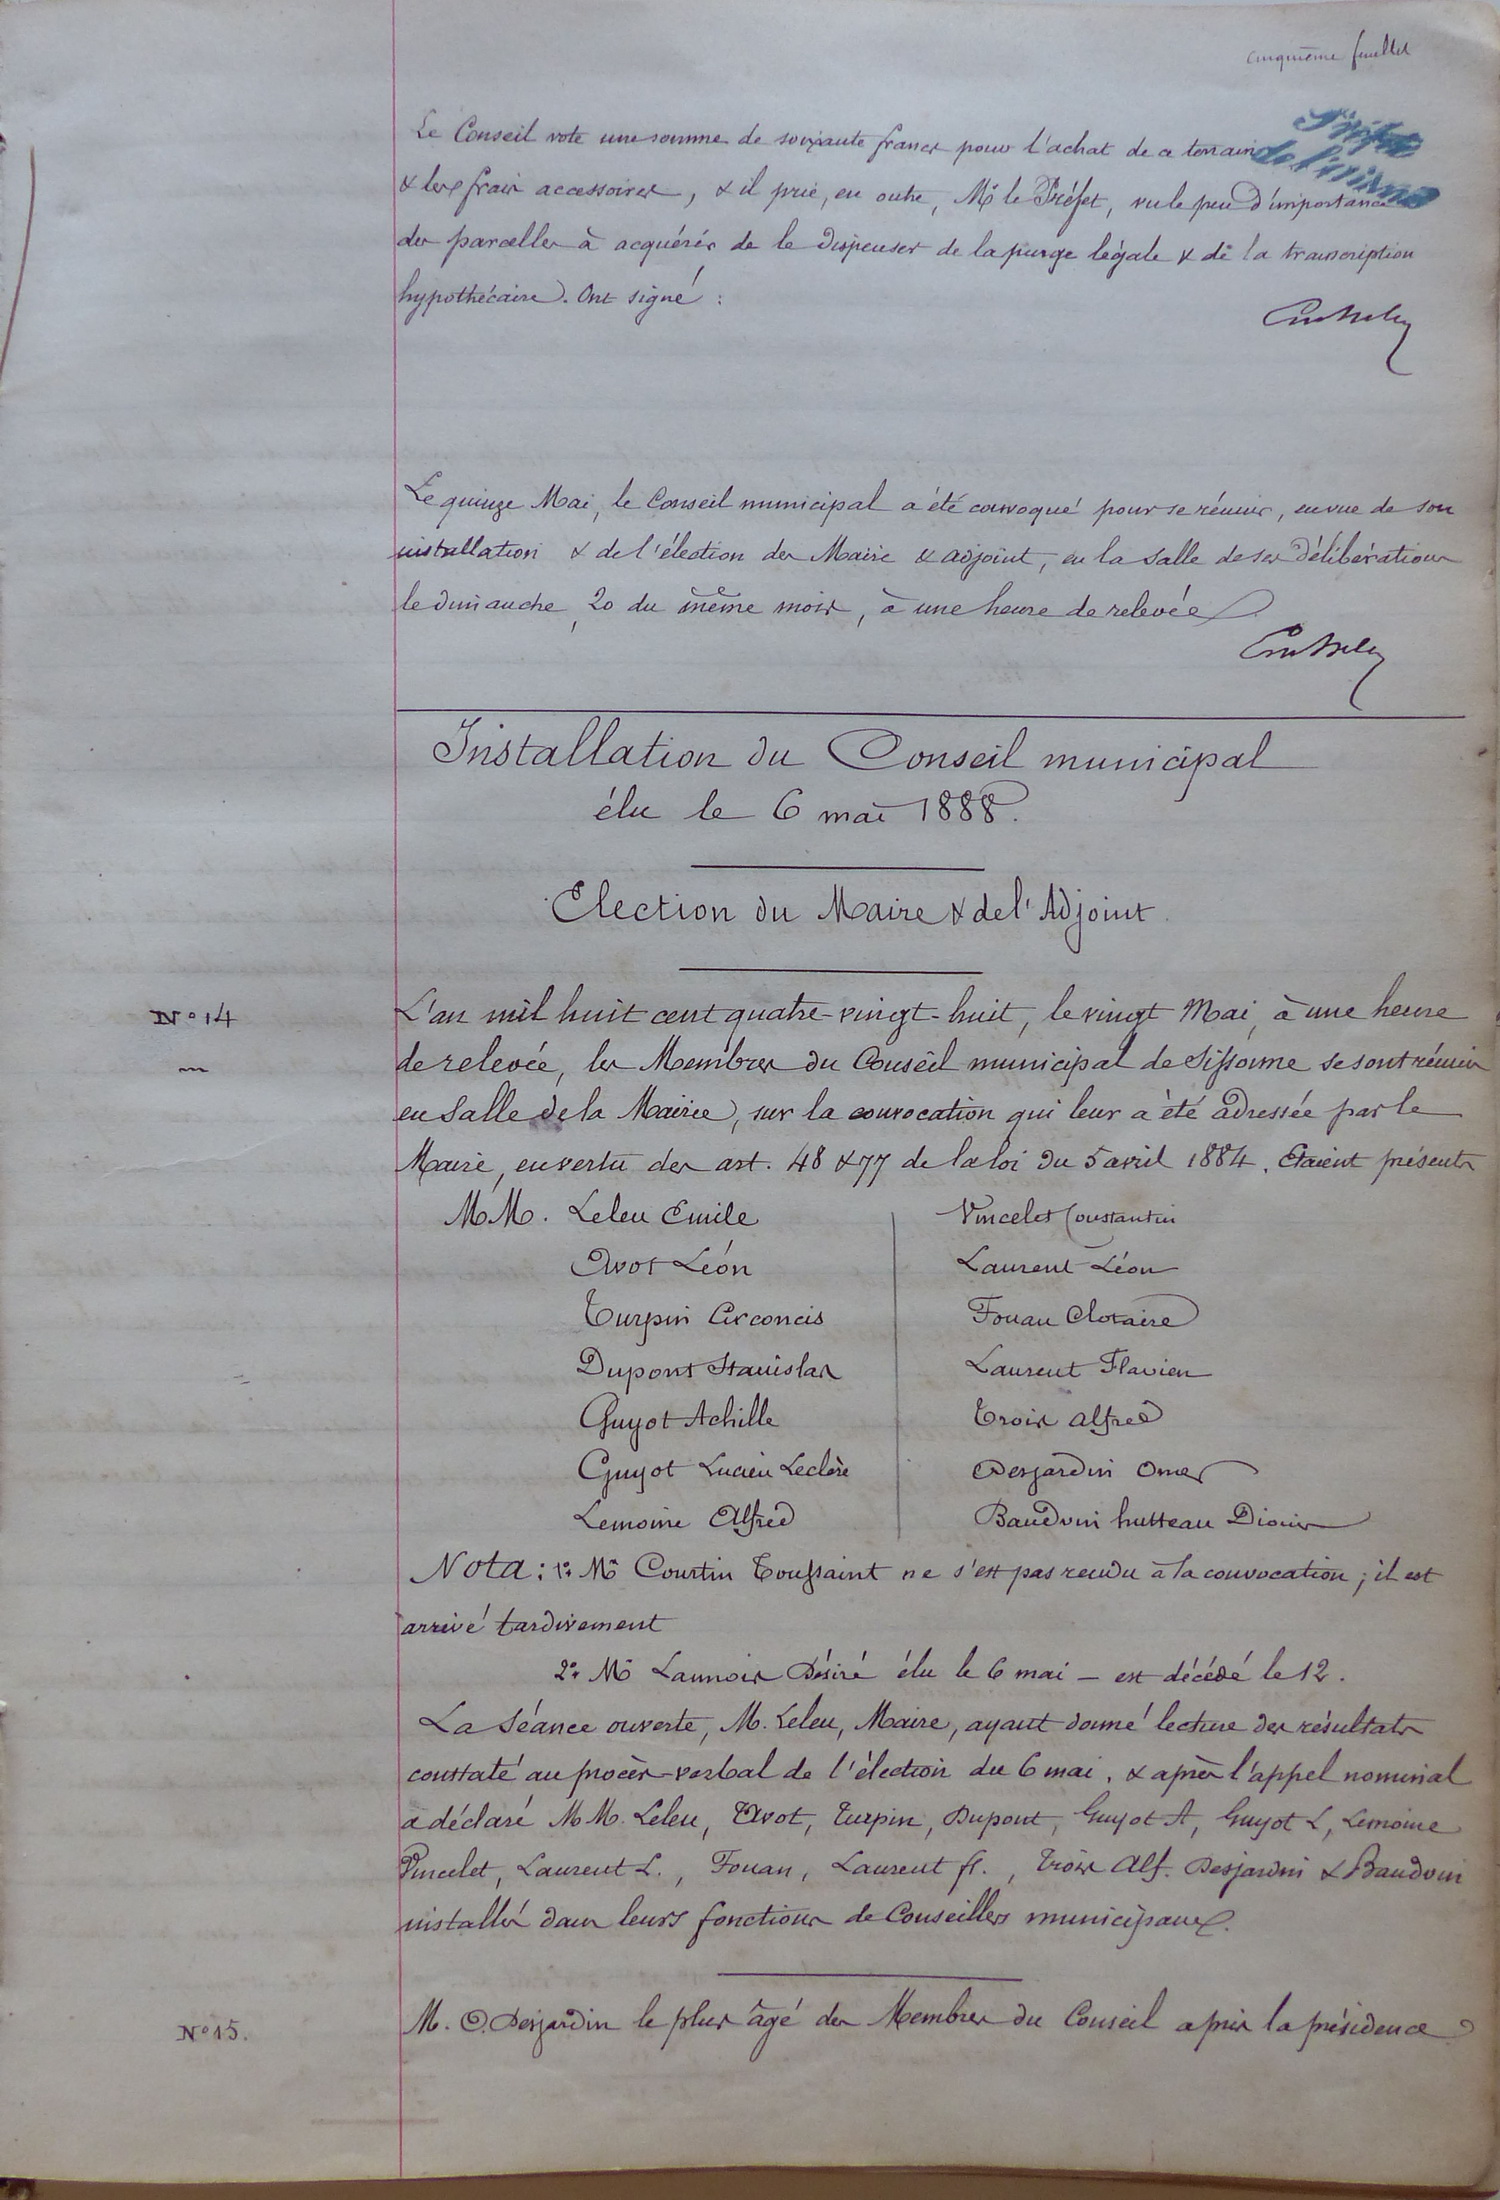 cinquième feuillet
Le Conseil vote une somme de soixante francs pour l'achat de ce terrain
& les frais accessoires, & il prie, en outre, Mr le Préfet, vu le peu d'importance
des parcelles à acquérir de le dispenser de la purge légale & de la transcription
hypothécaire. Ont signé :
Le quinze Mai, le Conseil municipal a été convoqué pour se réunir, en vue de son
installation & de l'élection des Maire & adjoint, en la salle de ses délibérations
le dimanche, 20 du même mois, à une heure de relevée
Installation du Conseil municipal
élu le 6 mai 1888.
Election du Maire & de l'Adjoint
N° 14
L'an mil huit cent quatre-vingt-huit, le vingt Mai, à une heure
de relevée, les Membres du Conseil municipal de Sissonne se sont réunis
en Salle de la Mairie, sur la convocation qui leur a été adressée par le
Maire, en vertu des art. 48 & 77 de la loi du 5 avril 1884. Etaient présents
MM. Leleu Emile Vincelet Constantin
Avot Léon Laurent Léon
Turpin Circoncis Fouan Clotaire
Dupont Stanislas Laurent Flavien
Guyot Achille Troix Alfred
Guyot Lucien Leclère Desjardin Omer
Lemoine Alfred Baudouin hutteau
Nota : 1° Mr Courtin Toussaint ne s'est pas rendu à la convocation ; il est
arrivé tardivement
2° Mr Launois Désiré élu le 6 mai – est décédé le 12.
La Séance ouverte, M. Leleu, Maire, ayant donné lecture des résultats
constaté au procès-verbal de l'élection du 6 mai, & après l'appel nominal
a déclaré MM. Leleu, Avot, Turpin, Dupont, Guyot A, Guyot L, Lemoine
Vincelet, Laurent L., Fouan, Laurent fl., Troix Alf. Desjardin & Baudouin
installés dans leurs fonctions de Conseillers municipaux.
N° 15.
M. O. Desjardin le plus âgé des Membres du Conseil a pris la présidence